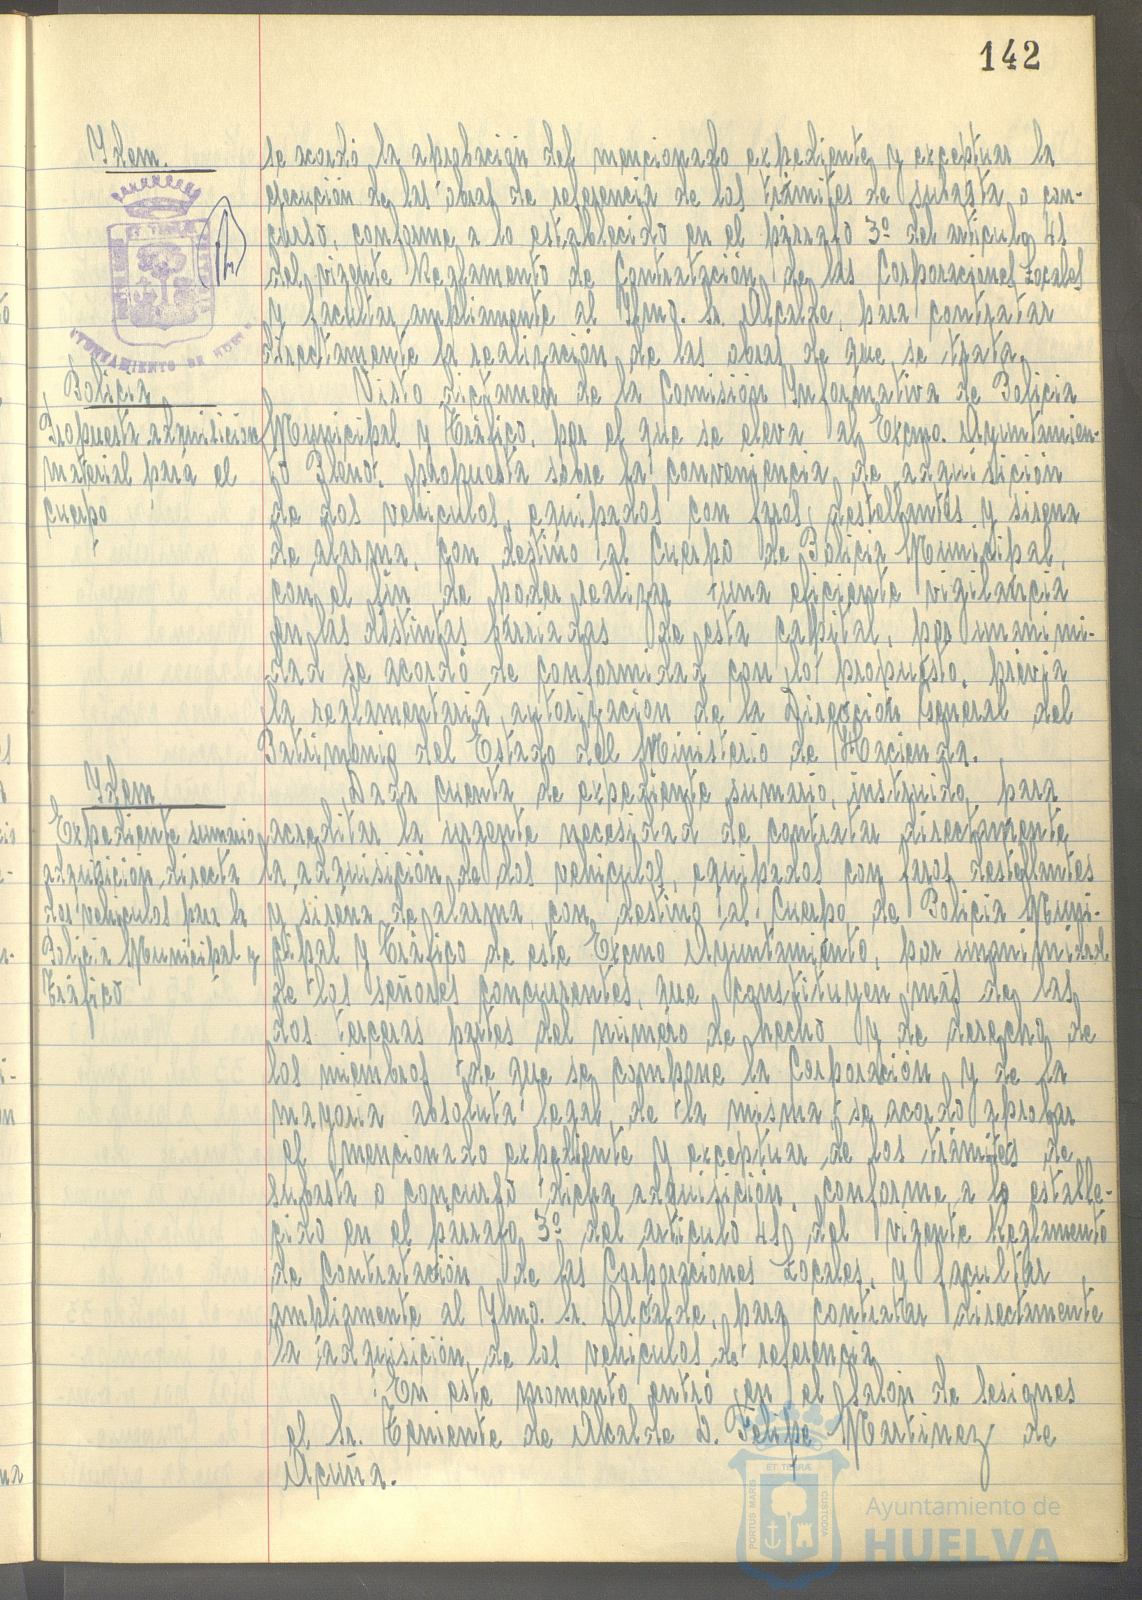 142
Idem.
se acordó la aprobación del mencionado expediente y exceptuar la
ejecución de las obras de referencia de los trámites de subasta o con-
curso, conforme a lo establecido en el párrafo 3º del artículo 41
del vigente Reglamento de Contratación de las Corporaciones Locales
y facultar ampliamente al Ilmo. Sr. Alcalde, para contratar
directamente la realización de las obras de que se trata.
AYUNTAMIENTO DE
Policia
Propuesta adquisición
material para el
cuerpo
Visto dictamen de la Comisión Informativa de Policia
Municipal y Tráfico, por el que se eleva al Excmo. Ayuntamien-
to Pleno, propuesta sobre la conveniencia de adquisición
de dos vehiculos, equipados con faros destellantes y sirena
de alarma, con destino al Cuerpo de Policia Municipal,
con el fin de poder realizar una eficiente vigilancia
en las distintas barriadas de esta capital, por unanimi-
dad se acordó de conformidad con lo propuesto, previa
la reglamentaria autorización de la Dirección General del
Patrimonio del Estado del Ministerio de Hacienda.
Idem
Expediente sumario
adquisición directa
dos vehiculos para la
Policia Municipal y
Tráfico
Dada cuenta de expediente sumario, instruido para
acreditar la urgente necesidad de contratar directamente
la adquisición de dos vehiculos, equipados con faros destellantes
y sirena de alarma, con destino al Cuerpo de Policia Muni-
cipal y Tráfico de este Excmo Ayuntamiento, por unanimidad
de los señores concurrentes, que constituyen más de las
dos terceras partes del número de hecho y de derecho de
los miembros de que se compone la Corporación y de la
mayoria absoluta legal de la misma, se acordó aprobar
el mencionado expediente y exceptuar de los trámites de
subasta o concurso dicha adquisición, conforme a lo estable-
cido en el párrafo 3º del articulo 41 del vigente Reglamento
de Contratación de las Corporaciones Locales, y facultar
ampliamente al Ilmo. Sr. Alcalde, para contratar directamente
la adquisición de los vehiculos de referencia
En este momento entró en el Salón de Sesiones
el Sr. Teniente de Alcalde D. Felipe Martinez de
Acuña.
PORTUS MARIS
ET TERRÆ
CUSTODIA
Ayuntamiento de
HUELVA